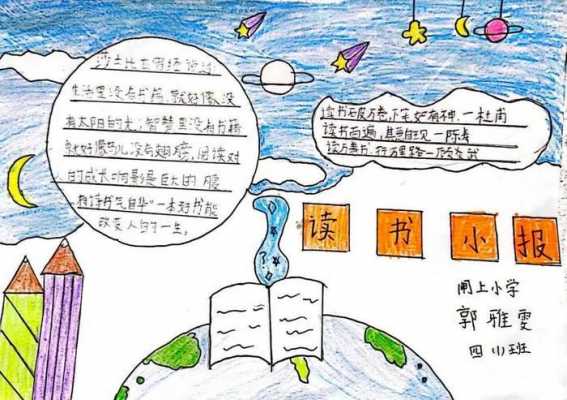 沙士比亚曾经说过:
生活里没有书籍,就好像没
有太阳的光,智慧里没有书籍
就好像鸟儿没有翅膀,阅读对
人的成长响影是巨大的,腹
有诗书气自华"一本好书能
改变人的一生。
读书破万卷,下笔如有神.一杜甫
读书百遍,其意自见一陈寿
读万卷书,行万里路一
读书小报
闸上小学
郭雅雯
四(1)班